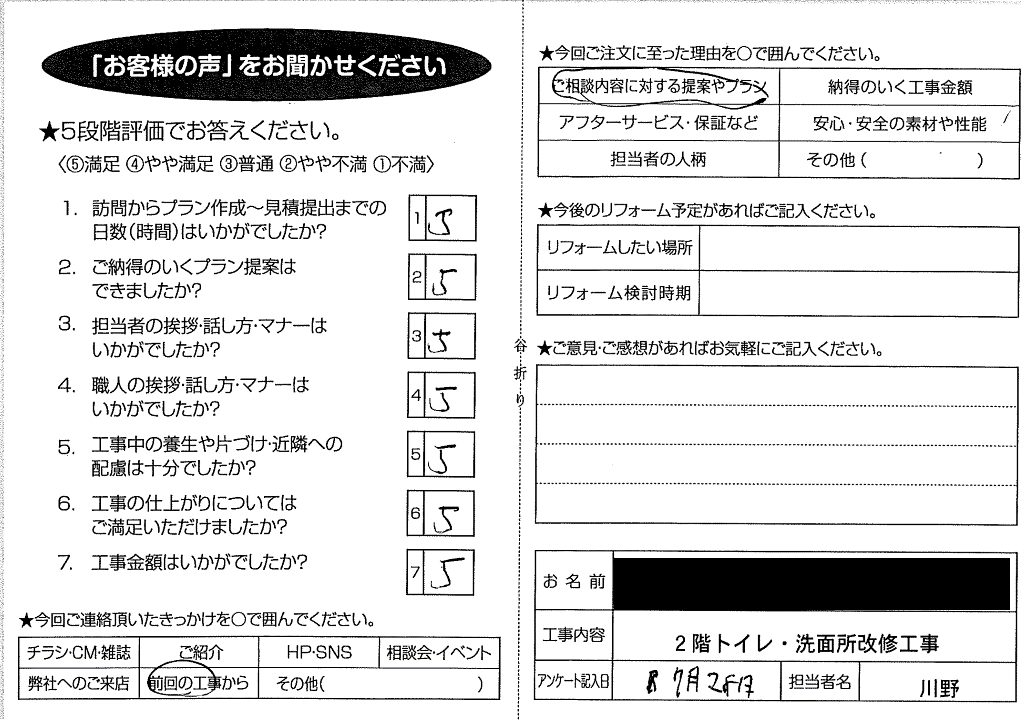 「お客様の声」をお聞かせください
★5段階評価でお答えください。
〈⑤満足 ④やや満足 ③普通 ②やや不満 ①不満〉
1. 訪問からプラン作成～見積提出までの
日数(時間)はいかがでしたか?
1 5
2. ご納得のいくプラン提案は
できましたか?
2 5
3. 担当者の挨拶・話し方・マナーは
いかがでしたか?
3 5
4. 職人の挨拶・話し方・マナーは
いかがでしたか?
4 5
5. 工事中の養生や片づけ・近隣への
配慮は十分でしたか?
5 5
6. 工事の仕上がりについては
ご満足いただけましたか?
6 5
7. 工事金額はいかがでしたか?
7 5
★今回ご連絡頂いたきっかけを○で囲んでください。
チラシ・CM・雑誌 ご紹介 HP・SNS 相談会・イベント
弊社へのご来店 前回の工事から その他( )
谷折り
★今回ご注文に至った理由を○で囲んでください。
ご相談内容に対する提案やプラン 納得のいく工事金額
アフターサービス・保証など 安心・安全の素材や性能
担当者の人柄 その他( )
★今後のリフォーム予定があればご記入ください。
リフォームしたい場所
リフォーム検討時期
★ご意見・ご感想があればお気軽にご記入ください。
お名前
工事内容 2階トイレ・洗面所改修工事
アンケート記入日 7月 担当者名 川野